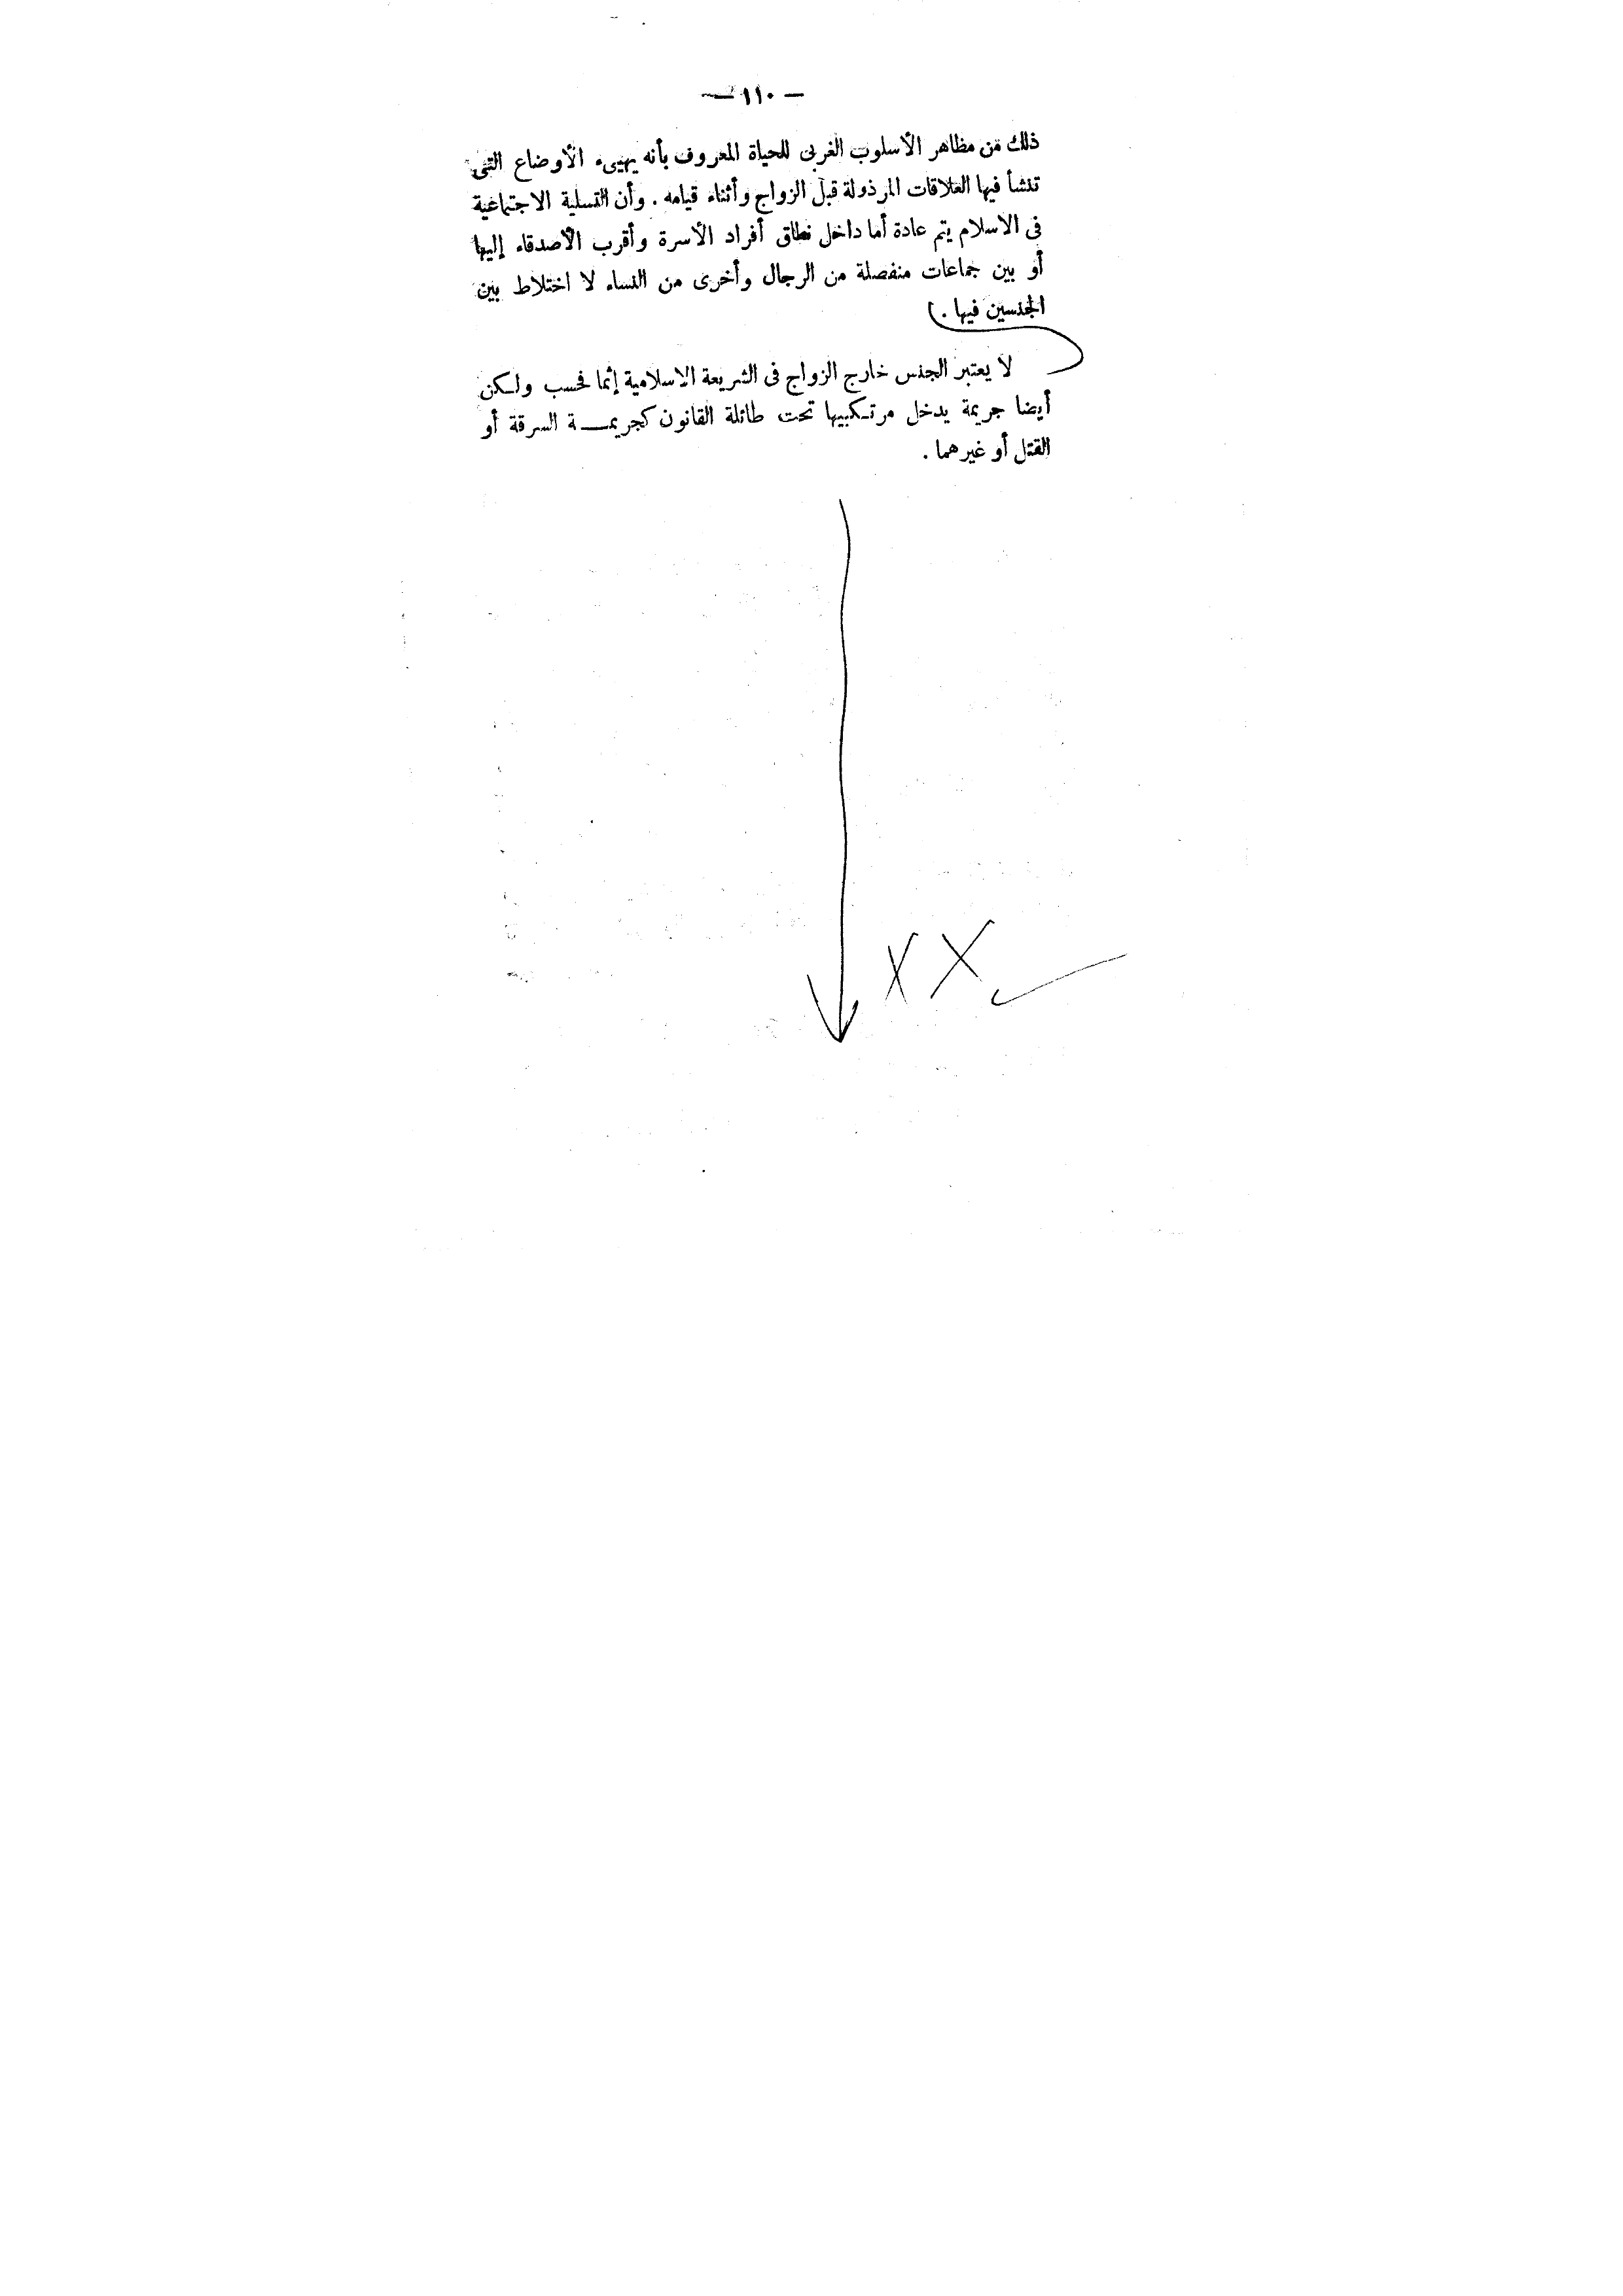 — ١١٠ —
ذلك من مظاهر الأسلوب الغربى للحياة المعروف بأنه يهيىء الأوضاع التى
تنشأ فيها العلاقات المرذولة قبل الزواج وأثناء قيامه . وأن التسلية الاجتماعية
فى الاسلام يتم عادة أما داخل نطاق أفراد الأسرة وأقرب الأصدقاء إليها
أو بين جماعات منفصلة من الرجال وأخرى من النساء لا اختلاط بين
الجنسين فيها .
لا يعتبر الجنس خارج الزواج فى الشريعة الاسلامية إثما فحسب ولكن
أيضا جريمة يدخل مرتكبيها تحت طائلة القانون كجريمــة السرقة أو
القتل أو غيرهما .
XX